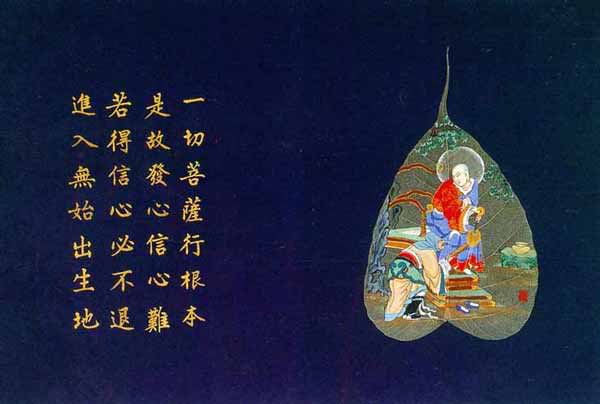 一切菩薩行根本
是故發心信心難
若得信心必不退
進入無始出生地